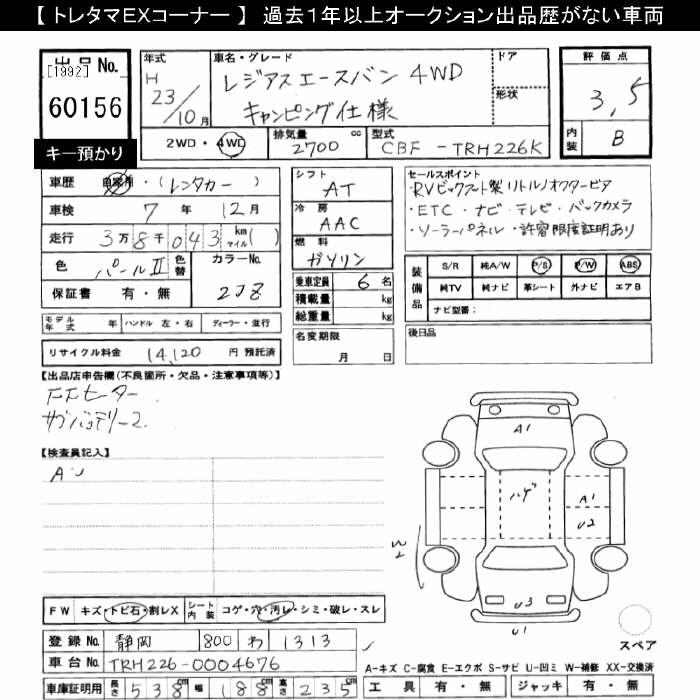 【 トレタマEXコーナー 】 過去1年以上オークション出品歴がない車両
出品 No.
[1992]
60156
キー預かり
年式
H 23/10月
車名・グレード
レジアスエースバン 4WD
キャンピング仕様
ドア
形状
評価点
3,5
内装
B
2WD・4WD
排気量 2700 cc
型式 CBF-TRH226K
車歴 自家用・(レンタカー)
車検 7年 12月
走行 3万8千043 km マイル( )
色 パールⅡ
色替
カラーNo.
2JZ
保証書 有・無
シフト
AT
冷房
AAC
燃料
ガソリン
乗車定員 6名
積載量 kg
総重量 kg
セールスポイント
・ETC・ナビ・テレビ・バックカメラ
・ソーラーパネル・許容限度証明あり
装備品
S/R 純A/W P/S P/W ABS
純TV 純ナビ 革シート 外ナビ エアB
ナビ型番:
モデル年式 年 ハンドル 左・右 ディーラー・並行
名変期限
月 日
後日品
リサイクル料金 14,120 円 預託済
【出品店申告欄(不良箇所・欠品・注意事項等)】
FFヒーター
サブバッテリー2
【検査員記入】
A U
A1
ハゲ
A1
U2
W2
U3
U1
スペア
FW キズ・トビ石・割レX
シート内装 コゲ・穴・汚レ・シミ・破レ・スレ
登録No. 静岡 800 わ 1313
車台No. TRH226-0004676
車庫証明用 長さ 538cm 幅 188cm 高さ 235cm
A-キズ C-腐食 E-エクボ S-サビ U-凹ミ W-補修 XX-交換済
工具 有・無 ジャッキ 有・無